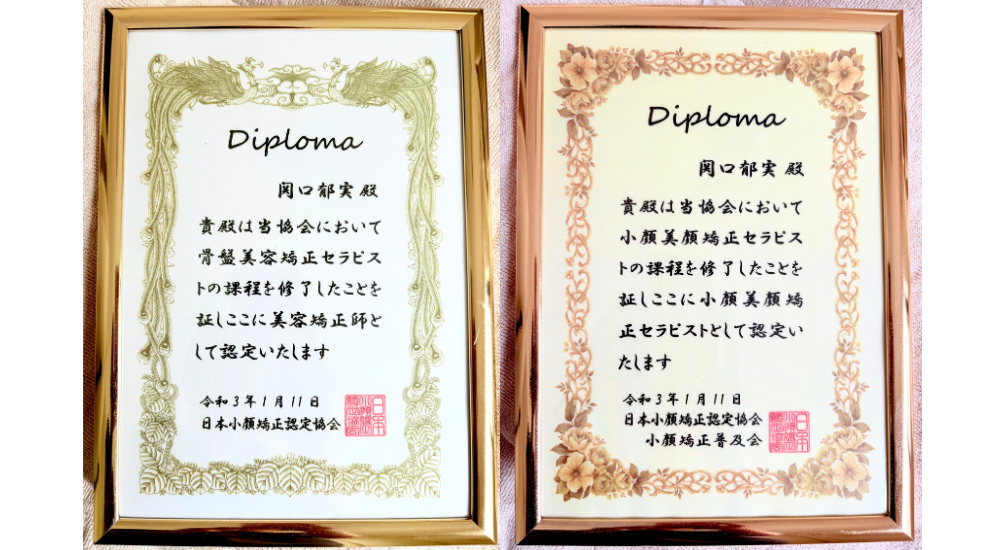 Diploma
関口郁実 殿
貴殿は当協会において
骨盤美容矯正セラピス
トの課程を修了したことを
証しここに美容矯正師と
して認定いたします
令和3年1月11日
日本小顔矯正認定協会
Diploma
関口郁実 殿
貴殿は当協会において
小顔美顔矯正セラピス
トの課程を修了したことを
証しここに小顔美顔矯
正セラピストとして認定い
たします
令和3年1月11日
日本小顔矯正認定協会
小顔矯正普及会